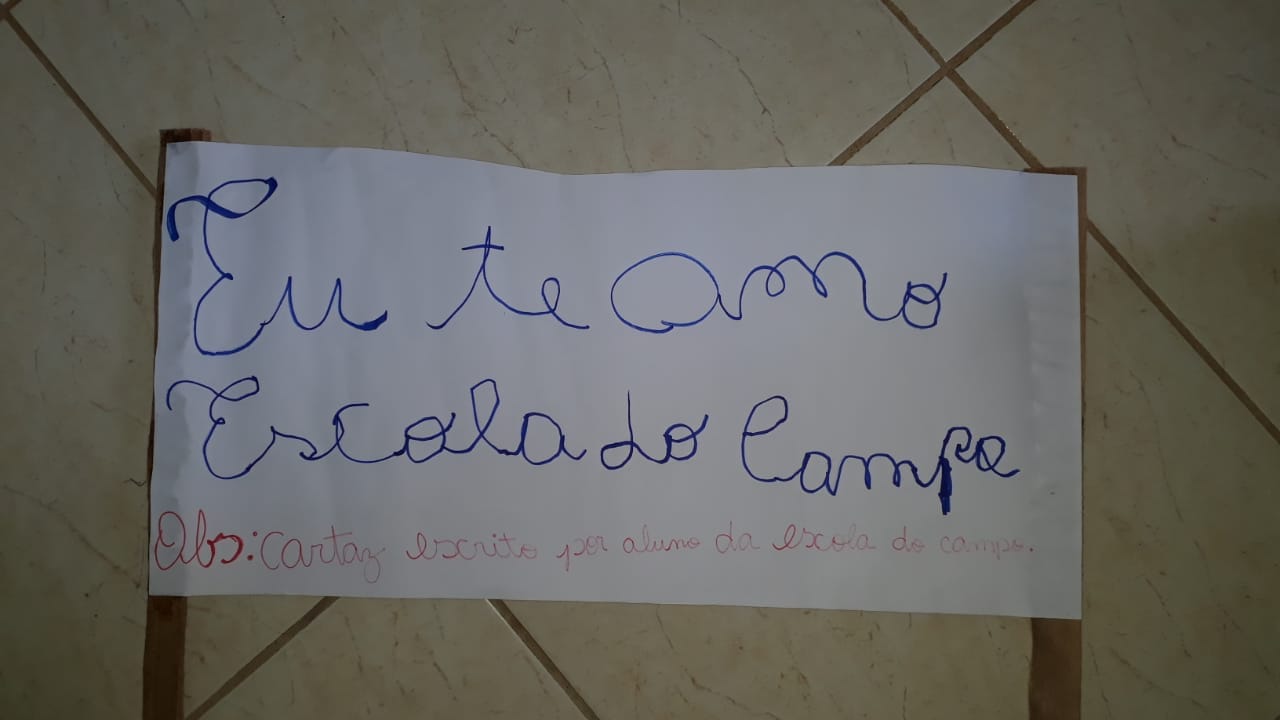 Eu te amo
Escola do Campo
Obs: Cartaz escrito por aluno da escola do campo.